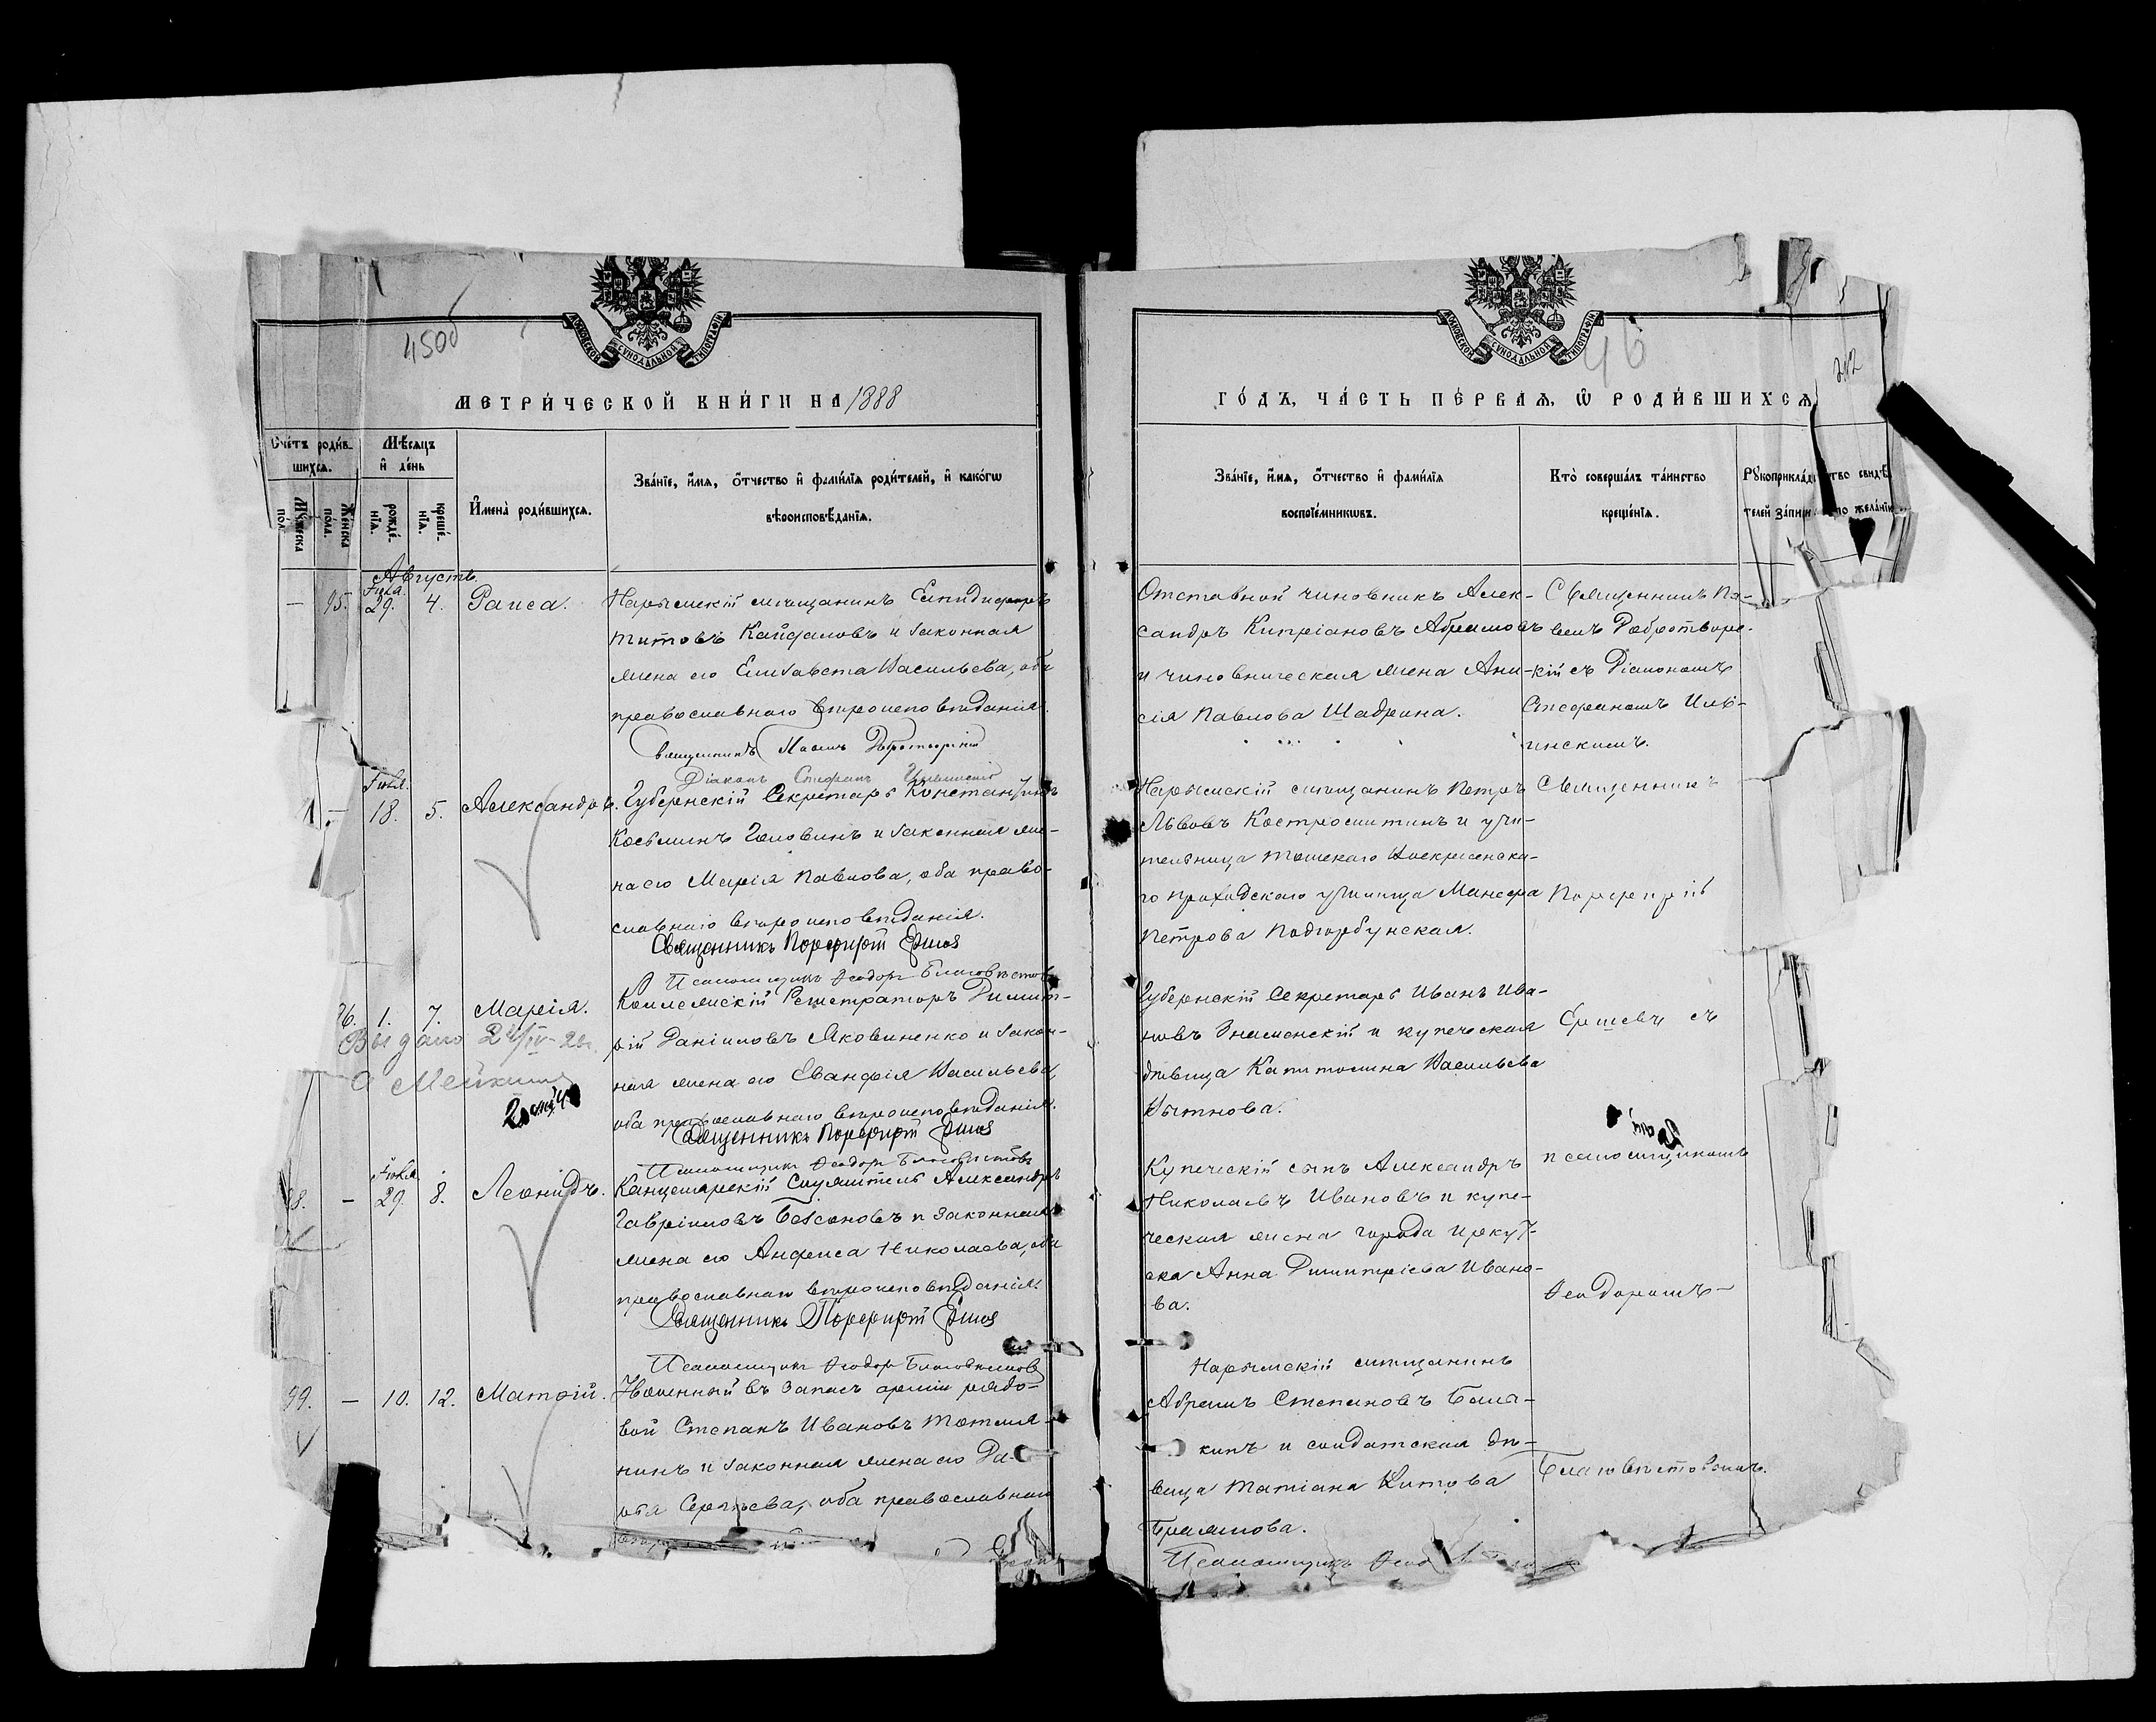 45об
МОСКОВСКОЙ СУНОДАЛЬНОЙ ТИПОГРАФІИ
МЕТРИ́ЧЕСКОЙ КНИ́ГИ НА 1888
Сче́тъ роди́в-
шихся.
Мѣ́сяцъ
и҆ де́нь
Му́жеска
по́л.
Же́нска
по́ла.
рожде́-
нїя.
креще́-
нїя.
И҆мена̀ роди́вшихся.
Зва́нїе, и҆́мя, ѻ҆́тчество и҆ фами́лїя роди́телей, и҆ како́гѡ
вѣроисповѣ́данїя.
Августъ.
Іюля.
— 95. 29. 4. Раиса. Нарымскій мѣщанинъ Епидифоръ
Титовъ Кайдаловъ и законная
жена его Елизавета Васильева, оба
православнаго вѣроисповѣданія.
Священникъ Павелъ Добротворскій
Діаконъ Стефанъ Ильинскій
Іюля.
— 18. 5. Александръ. Губернскій Секретарь Константинъ
Козьминъ Головинъ и законная же-
на его Марія Павлова, оба право-
славнаго вѣроисповѣданія.
Священникъ Порфирій Ершов
Псаломщикъ Ѳеодоръ Благовѣстовъ
96. 1. 7. Марія. Коллежскій Регистраторъ Димит-
рій Даніиловъ Яковиненко и закон-
ная жена его Еванфія Васильева,
оба православнаго вѣроисповѣданія.
Выдано
Священникъ Порфирій Ершов
Псаломщикъ Ѳеодоръ Благовѣстовъ
Іюля
98. — 29. 8. Леонидъ. Канцелярскій Служитель Александръ
Гавріиловъ Безсоновъ и законная
жена его Анфиса Николаева, оба
православнаго вѣроисповѣданія.
Священникъ Порфирій Ершов
Псаломщикъ Ѳеодоръ Благовѣстовъ
99. — 10. 12. Матѳій. Уволенный въ запасъ арміи рядо-
вой Степанъ Ивановъ
и законная жена его
Сергѣева, оба православнаго
46
МОСКОВСКОЙ СУНОДАЛЬНОЙ ТИПОГРАФІИ
ГО́ДЪ, ЧА́СТЬ ПЕ́РВАЯ, Ѡ҆ РОДИ́ВШИХСЯ
Зва́нїе, и҆́мя, ѻ҆́тчество и҆ фами́лїя
воспрїе́мникѡвъ.
Кто̀ соверша́лъ та́инство
креще́нїя.
Рꙋкоприкла́д тво свидѣ́
телей за́писи по жела́нїю
Отставной чиновникъ Алек-
сандръ Кипріановъ Абрамовъ
и чиновническая жена Ани-
сія Павлова Шадрина.
Священникъ Па-
велъ Добротворс-
кій съ Діакономъ
Стефаномъ Иль-
инскимъ.
Нарымскій мѣщанинъ Петръ
Львовъ Костромитинъ и учи-
тельница Томскаго Воскресенска-
го приходскаго училища Манефа
Петрова Подгорбунская.
Священникъ
Порфирій
Губернскій Секретарь Иванъ Ива-
новъ Знаменскій и купеческая
дѣвица Капитолина Васильева
Вытнова.
Ершовъ съ
Купеческій сынъ Александръ
Николаевъ Ивановъ и купе-
ческая жена города Иркут-
ска Анна Димитріева Ивано-
ва.
псаломщикомъ
Ѳеодоромъ
Нарымскій мѣщанинъ
Абрамъ Степановъ Бала-
кинъ и солдатская дѣ-
вица Татіана Титова
Благовѣстовымъ.
Псаломщикъ